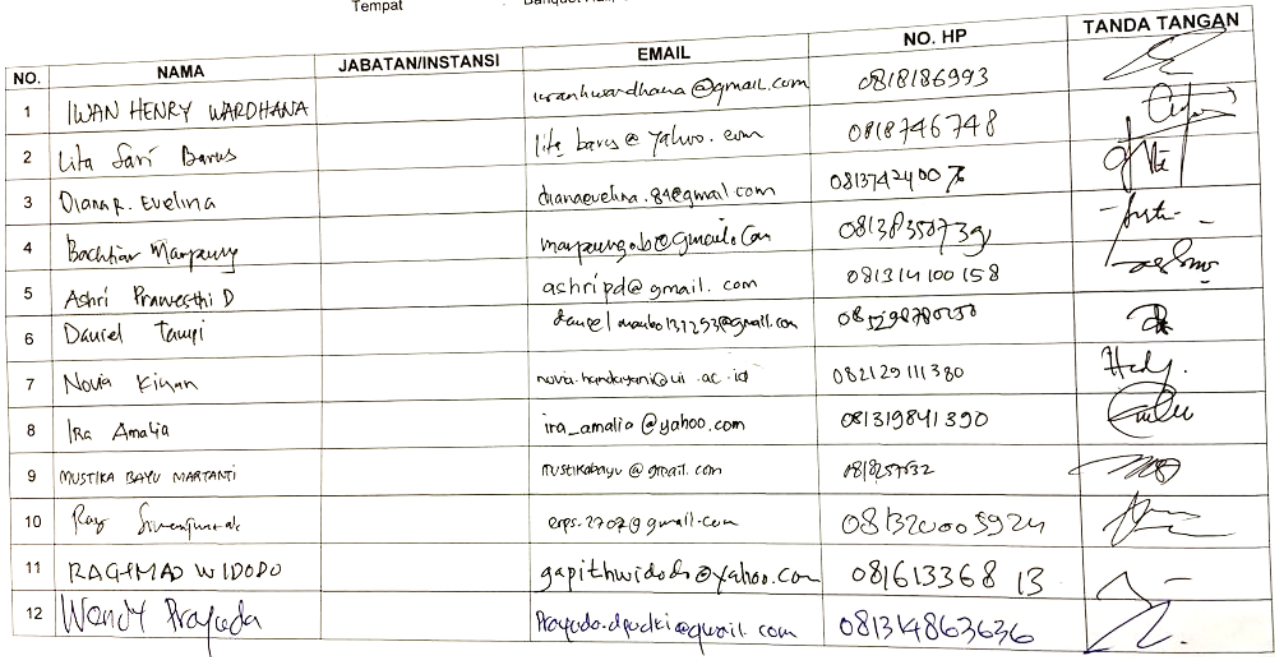 Tempat
NO. NAMA JABATAN/INSTANSI EMAIL NO. HP TANDA TANGAN
1 IWAN HENRY WARDHANA iwanhwardhana@gmail.com 0818186993
2 Lita Sari Barus lita barus@yahoo.com 0818746748
3 Diana R. Evelina dianaevelina.84@gmail.com
4 Bachtiar Marpaung marpaung.b@gmail.com
5 Ashri Prawesthi D ashripd@gmail.com 081314100158
6 Daniel
7 Novia novia.handayani@ui.ac.id 082129111380
8 Ira Amalia ira_amalia@yahoo.com 081319841390
9 MUSTIKA BAYU MARTANTI mustikabayu@gmail.com
10 Ray erps.2707@gmail.com 081320005924
11 RACHMAD WIDODO gapithwidodo@yahoo.com 08161336813
12 Wendy Prayuda Prayuda.dpudki@gmail.com 081314863636